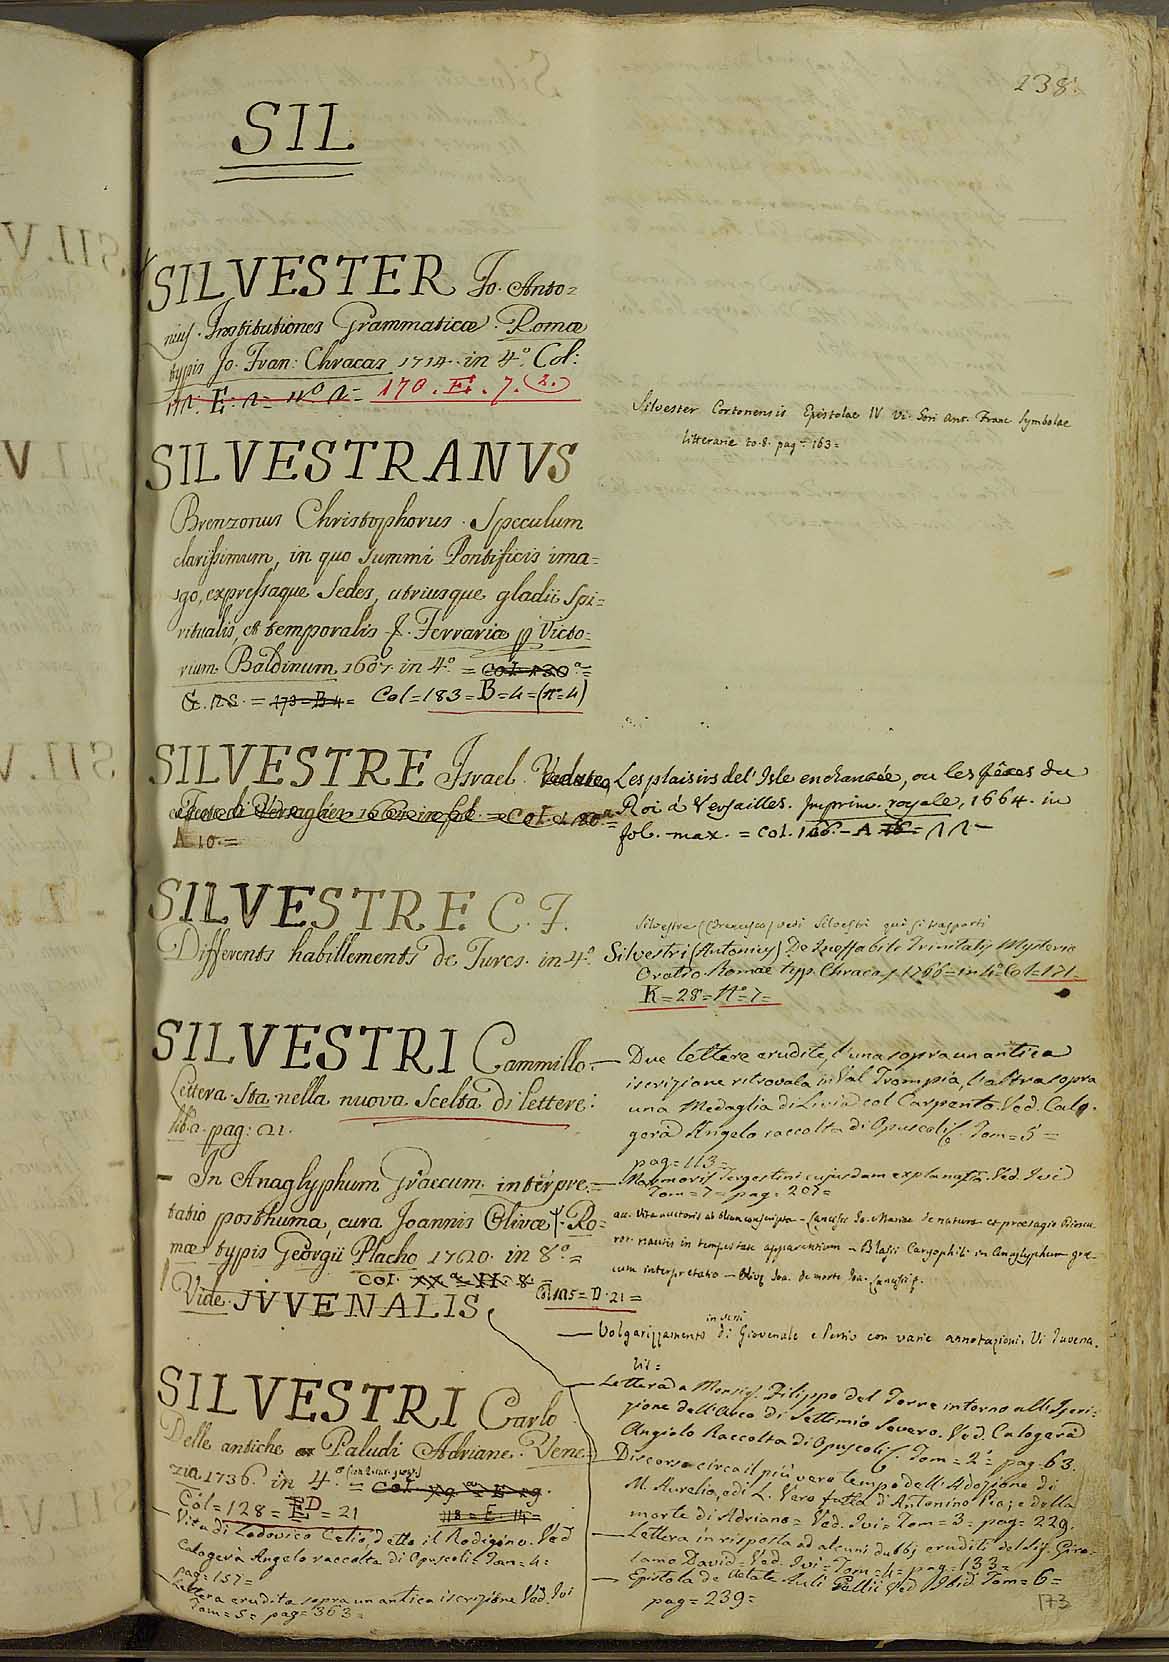 238.
SIL
SILVESTER Jo. Anto=
nius. Institutiones Grammaticæ. Romæ
typis Jo. Fran: Chracas 1714. in 4.° Col:
170. E. 7. (2.)
Silvester Cortonensis Epistolae IV Vi. Gori Ant. Franc Symbolae
litterarie to. 8. pag = 163 =
SILVESTRANVS
Brenzonus Christophorus. Speculum
clarissimum, in quo summi Pontificis ima=
go, expressaque Sedes, utriusque gladii Spi=
ritualis, et temporalis &. Ferrariæ p Victo=
rium Baldinum 1607. in 4.° =
Col = 183 = B = 4 = (n = 4)
SILVESTRE Israel. Vedute,
A 10. =
Les plaisirs de l'Isle enchantée, ou les fêtes du
Roi à Versailles. Imprim. royale, 1664. in
fol. max. = Col.
SILVESTRE C. F.
Differents habillements de Turcs. in 4.°
Silvestre (Francesco) vedi Silvestri quì si trasporti
Silvestri (Antonius) De Ineffabili Trinitatis Mysterio
Oratio Romae typ. Chracas 1766 = in 4.° Col = 171 =
K = 28 = N.° 7 =
SILVESTRI Cammillo.
Lettera. Sta nella nuova Scelta di lettere:
lib.a pag: 21.
— In Anaglyphum Græcum interpre=
tatio posthuma, cura Joannis Olivæ. Ro=
mæ typis Georgii Placho 1720. in 8.° =
Col.
Vide. JVVENALIS
— Due lettere erudite, l'una sopra un antica
iscrizione ritrovata in Val Trompia, l'altra sopra
una Medaglia di Livia col Carpento. Ved. Calo.
gerà Angelo raccolta di Opuscoli &. Tom = 5 =
pag = 113 =
— Marmoris Tergestini cujusdam explanatio. Ved. Ivi
Tom = 7 = pag = 207 =
acc. Vita auctoris ab Oliva conscripta — Cancisii Jo. Mariae de natura et praesagio Dioscu
ror. nautis in tempestate apparentium — Blasii Caryophili in Anaglyphum græ=
cum interpretatio —
Col 105 = D. 21 =
— Volgarizzamento in versi di Giovenale e Persio con varie annotazioni. Vi Juvena.
lis =
— Lettera a Monsig. Filippo del Torre intorno all'Iscri=
zione dell'Arco di Settimio Severo. Ved. Calogerà
Angiolo Raccolta di Opuscoli &. Tom = 2 = pag. 63.
Discorso circa il più vero tempo dell'Adozione di
M. Aurelio, e di L. Vero fatta d'Antonino Pio; e della
morte di Adriano = Ved. Ivi = Tom = 3 = pag = 229.
— Lettera in risposta ad alcuni dubbj eruditi del Sig. Giro=
lamo David = Ved. Ivi = Tom = 4 = pag = 133 =
— Epistola de Aetate Auli Gellii Ved Ibid Tom = 6 =
pag = 239 =
SILVESTRI Carlo
Delle antiche Paludi Adriane. Vene=
zia 1736. in 4.° =
Col = 128 = E D = 21
— Vita di Lodovico Celio, detto il Rodigino. Ved
Calogerà Angelo raccolta di Opuscoli. Tom = 4 =
pag = 157 =
— Lettera erudita sopra un antica iscrizione Ved. Ivi
Tom = 5 = pag = 363 =
173